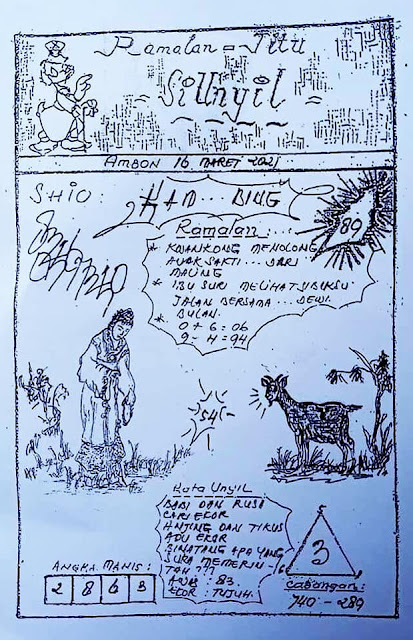 Ramalan = Jitu
= Si Unyil =
AMBON 16 MARET 2021
SHIO
89
Ramalan:
* KWANKONG MENOLONG
ANAK SAKTI ... DARI
MALING
* IBU SURI MELIHAT BIKSU
JALAN BERSAMA ... DEWI
BULAN.
* 0 + 6 = 06
9 - 4 = 94
Kata Unyil
BABI DAN RUSA
CARI EKOR
ANJING DAN TIKUS
ADU EKOR
BINATANG APA YANG
SUKA MEMERIN-
TAH ???
EKOR : TUJUH.
3
6
ANGKA MANIS:
2 8 6 3
Cabangan:
740 - 289